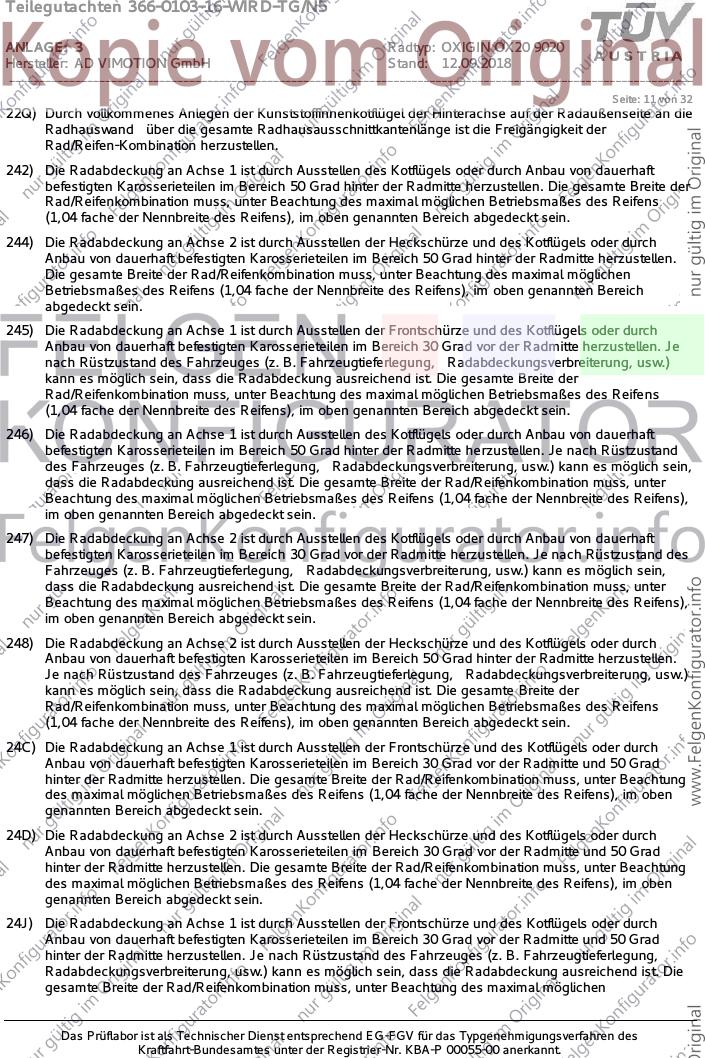 Teilegutachten 366-0103-16-WIRD-TG/N5
TÜV
AUSTRIA
ANLAGE: 3
Radtyp: OXIGIN OX20 9020
Hersteller: AD VIMOTION GmbH
Stand: 12.09.2018
Kopie vom Original
Seite: 11 von 32
22Q) Durch vollkommenes Anlegen der Kunststoffinnenkotflügel der Hinterachse auf der Radaußenseite an die
Radhauswand über die gesamte Radhausausschnittkantenlänge ist die Freigängigkeit der
Rad/Reifen-Kombination herzustellen.
242) Die Radabdeckung an Achse 1 ist durch Ausstellen des Kotflügels oder durch Anbau von dauerhaft
befestigten Karosserieteilen im Bereich 50 Grad hinter der Radmitte herzustellen. Die gesamte Breite der
Rad/Reifenkombination muss, unter Beachtung des maximal möglichen Betriebsmaßes des Reifens
(1,04 fache der Nennbreite des Reifens), im oben genannten Bereich abgedeckt sein.
244) Die Radabdeckung an Achse 2 ist durch Ausstellen der Heckschürze und des Kotflügels oder durch
Anbau von dauerhaft befestigten Karosserieteilen im Bereich 50 Grad hinter der Radmitte herzustellen.
Die gesamte Breite der Rad/Reifenkombination muss, unter Beachtung des maximal möglichen
Betriebsmaßes des Reifens (1,04 fache der Nennbreite des Reifens), im oben genannten Bereich
abgedeckt sein.
245) Die Radabdeckung an Achse 1 ist durch Ausstellen der Frontschürze und des Kotflügels oder durch
Anbau von dauerhaft befestigten Karosserieteilen im Bereich 30 Grad vor der Radmitte herzustellen. Je
nach Rüstzustand des Fahrzeuges (z. B. Fahrzeugtieferlegung, Radabdeckungsverbreiterung, usw.)
kann es möglich sein, dass die Radabdeckung ausreichend ist. Die gesamte Breite der
Rad/Reifenkombination muss, unter Beachtung des maximal möglichen Betriebsmaßes des Reifens
(1,04 fache der Nennbreite des Reifens), im oben genannten Bereich abgedeckt sein.
246) Die Radabdeckung an Achse 1 ist durch Ausstellen des Kotflügels oder durch Anbau von dauerhaft
befestigten Karosserieteilen im Bereich 50 Grad hinter der Radmitte herzustellen. Je nach Rüstzustand
des Fahrzeuges (z. B. Fahrzeugtieferlegung, Radabdeckungsverbreiterung, usw.) kann es möglich sein,
dass die Radabdeckung ausreichend ist. Die gesamte Breite der Rad/Reifenkombination muss, unter
Beachtung des maximal möglichen Betriebsmaßes des Reifens (1,04 fache der Nennbreite des Reifens),
im oben genannten Bereich abgedeckt sein.
247) Die Radabdeckung an Achse 2 ist durch Ausstellen des Kotflügels oder durch Anbau von dauerhaft
befestigten Karosserieteilen im Bereich 30 Grad vor der Radmitte herzustellen. Je nach Rüstzustand des
Fahrzeuges (z. B. Fahrzeugtieferlegung, Radabdeckungsverbreiterung, usw.) kann es möglich sein,
dass die Radabdeckung ausreichend ist. Die gesamte Breite der Rad/Reifenkombination muss, unter
Beachtung des maximal möglichen Betriebsmaßes des Reifens (1,04 fache der Nennbreite des Reifens),
im oben genannten Bereich abgedeckt sein.
248) Die Radabdeckung an Achse 2 ist durch Ausstellen der Heckschürze und des Kotflügels oder durch
Anbau von dauerhaft befestigten Karosserieteilen im Bereich 50 Grad hinter der Radmitte herzustellen.
Je nach Rüstzustand des Fahrzeuges (z. B. Fahrzeugtieferlegung, Radabdeckungsverbreiterung, usw.)
kann es möglich sein, dass die Radabdeckung ausreichend ist. Die gesamte Breite der
Rad/Reifenkombination muss, unter Beachtung des maximal möglichen Betriebsmaßes des Reifens
(1,04 fache der Nennbreite des Reifens), im oben genannten Bereich abgedeckt sein.
24C) Die Radabdeckung an Achse 1 ist durch Ausstellen der Frontschürze und des Kotflügels oder durch
Anbau von dauerhaft befestigten Karosserieteilen im Bereich 30 Grad vor der Radmitte und 50 Grad
hinter der Radmitte herzustellen. Die gesamte Breite der Rad/Reifenkombination muss, unter Beachtung
des maximal möglichen Betriebsmaßes des Reifens (1,04 fache der Nennbreite des Reifens), im oben
genannten Bereich abgedeckt sein.
24D) Die Radabdeckung an Achse 2 ist durch Ausstellen der Heckschürze und des Kotflügels oder durch
Anbau von dauerhaft befestigten Karosserieteilen im Bereich 30 Grad vor der Radmitte und 50 Grad
hinter der Radmitte herzustellen. Die gesamte Breite der Rad/Reifenkombination muss, unter Beachtung
des maximal möglichen Betriebsmaßes des Reifens (1,04 fache der Nennbreite des Reifens), im oben
genannten Bereich abgedeckt sein.
24J) Die Radabdeckung an Achse 1 ist durch Ausstellen der Frontschürze und des Kotflügels oder durch
Anbau von dauerhaft befestigten Karosserieteilen im Bereich 30 Grad vor der Radmitte und 50 Grad
hinter der Radmitte herzustellen. Je nach Rüstzustand des Fahrzeuges (z. B. Fahrzeugtieferlegung,
Radabdeckungsverbreiterung, usw.) kann es möglich sein, dass die Radabdeckung ausreichend ist. Die
gesamte Breite der Rad/Reifenkombination muss, unter Beachtung des maximal möglichen
Das Prüflabor ist als Technischer Dienst entsprechend EG-FGV für das Typgenehmigungsverfahren des
Kraftfahrt-Bundesamtes unter der Registrier-Nr. KBA-P 00055-00 anerkannt.
FELGEN
KONFIGURATOR
FelgenKonfigurator.info
nur gültig im Original
www.FelgenKonfigurator.info